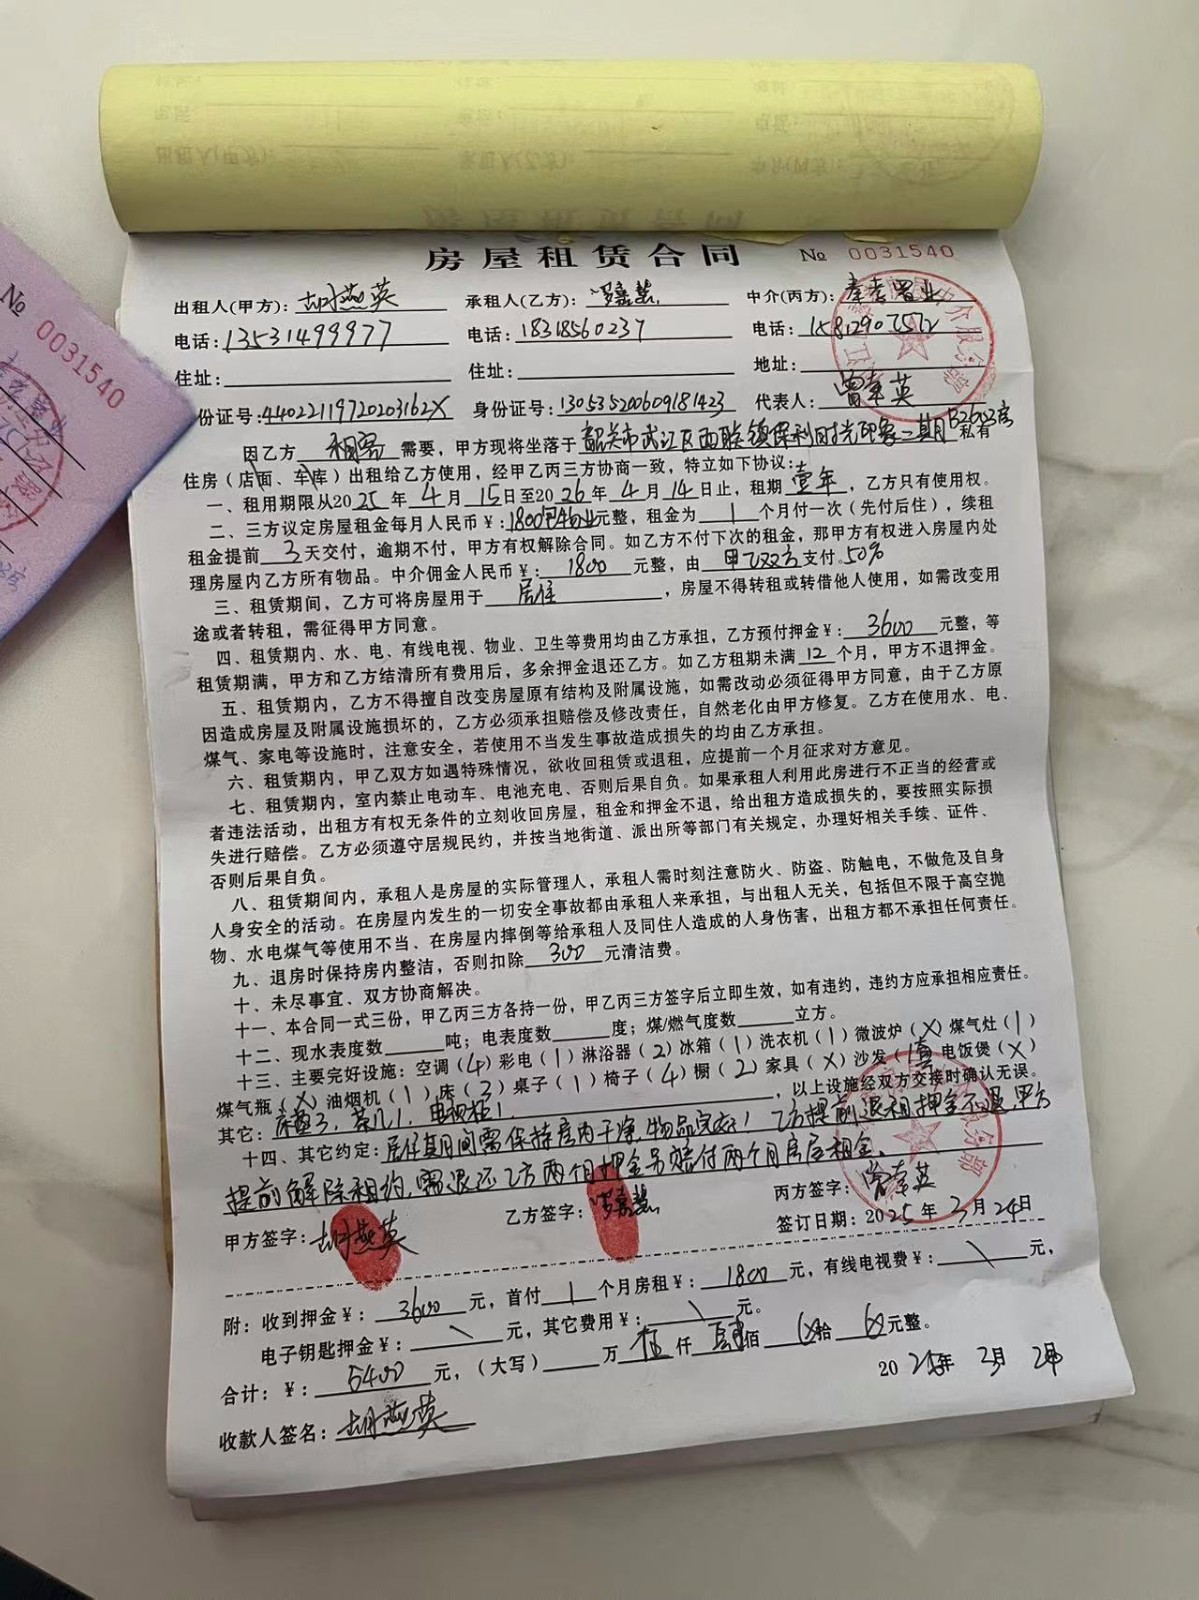 房屋租赁合同 № 0031540
出租人(甲方): 胡燕英 承租人(乙方): 罗嘉慧 中介(丙方): 置业
电话: 13531499977 电话: 18318560237 电话:
住址: 住址: 地址:
份证号: 44022119720203162X 身份证号: 130535200609181423 代表人: 英
因乙方 租客 需要，甲方现将坐落于 韶关市武江区西联镇保利时光印象二期 私有
住房（店面、车库）出租给乙方使用，经甲乙丙三方协商一致，特立如下协议：
一、租用期限从2025年4月15日至2026年4月14日止，租期 壹年，乙方只有使用权。
二、三方议定房屋租金每月人民币¥: 1800 物业元整，租金为 1 个月付一次（先付后住），续租
租金提前 3 天交付，逾期不付，甲方有权解除合同。如乙方不付下次的租金，那甲方有权进入房屋内处
理房屋内乙方所有物品。中介佣金人民币¥: 1800 元整，由 甲乙双方 支付。50%
三、租赁期间，乙方可将房屋用于 居住 ，房屋不得转租或转借他人使用，如需改变用
途或者转租，需征得甲方同意。
四、租赁期内、水、电、有线电视、物业、卫生等费用均由乙方承担，乙方预付押金¥: 3600 元整，等
租赁期满，甲方和乙方结清所有费用后，多余押金退还乙方。如乙方租期未满 12 个月，甲方不退押金。
五、租赁期内，乙方不得擅自改变房屋原有结构及附属设施，如需改动必须征得甲方同意，由于乙方原
因造成房屋及附属设施损坏的，乙方必须承担赔偿及修改责任，自然老化由甲方修复。乙方在使用水、电、
煤气、家电等设施时，注意安全，若使用不当发生事故造成损失的均由乙方承担。
六、租赁期内，甲乙双方如遇特殊情况，欲收回租赁或退租，应提前一个月征求对方意见。
七、租赁期内，室内禁止电动车、电池充电、否则后果自负。如果承租人利用此房进行不正当的经营或
者违法活动，出租方有权无条件的立刻收回房屋，租金和押金不退，给出租方造成损失的，要按照实际损
失进行赔偿。乙方必须遵守居规民约，并按当地街道、派出所等部门有关规定，办理好相关手续、证件、
否则后果自负。
八、租赁期间内，承租人是房屋的实际管理人，承租人需时刻注意防火、防盗、防触电，不做危及自身
人身安全的活动。在房屋内发生的一切安全事故都由承租人来承担，与出租人无关，包括但不限于高空抛
物、水电煤气等使用不当、在房屋内摔倒等给承租人及同住人造成的人身伤害，出租方都不承担任何责任。
九、退房时保持房内整洁，否则扣除 300 元清洁费。
十、未尽事宜、双方协商解决。
十一、本合同一式三份，甲乙丙三方各持一份，甲乙丙三方签字后立即生效，如有违约，违约方应承担相应责任。
十二、现水表度数 吨；电表度数 度；煤/燃气度数 立方。
十三、主要完好设施：空调（4）彩电（1）淋浴器（2）冰箱（1）洗衣机（1）微波炉（X）煤气灶（1）
煤气瓶（X）油烟机（1）床（3）桌子（1）椅子（4）橱（2）家具（X）沙发（1套）电饭煲（X）
其它: 床垫3，茶几1，电视柜1. ，以上设施经双方交接时确认无误。
十四、其它约定: 居住期间需保持房内干净，物品完好！乙方提前退租押金不退，甲方
提前解除租约，需退还乙方两个月押金另赔付两个月房屋租金。
甲方签字: 胡燕英 乙方签字: 罗嘉慧 丙方签字: 英
签订日期: 2025年3月24日
附: 收到押金¥: 3600 元，首付 1 个月房租¥: 1800 元，有线电视费¥: \ 元，
电子钥匙押金¥: \ 元，其它费用¥: \ 元。
合计: ¥: 5400 元，（大写） 万 伍 仟 肆 佰 拾 元整。
收款人签名: 胡燕英 2025年3月24日
№ 0031540